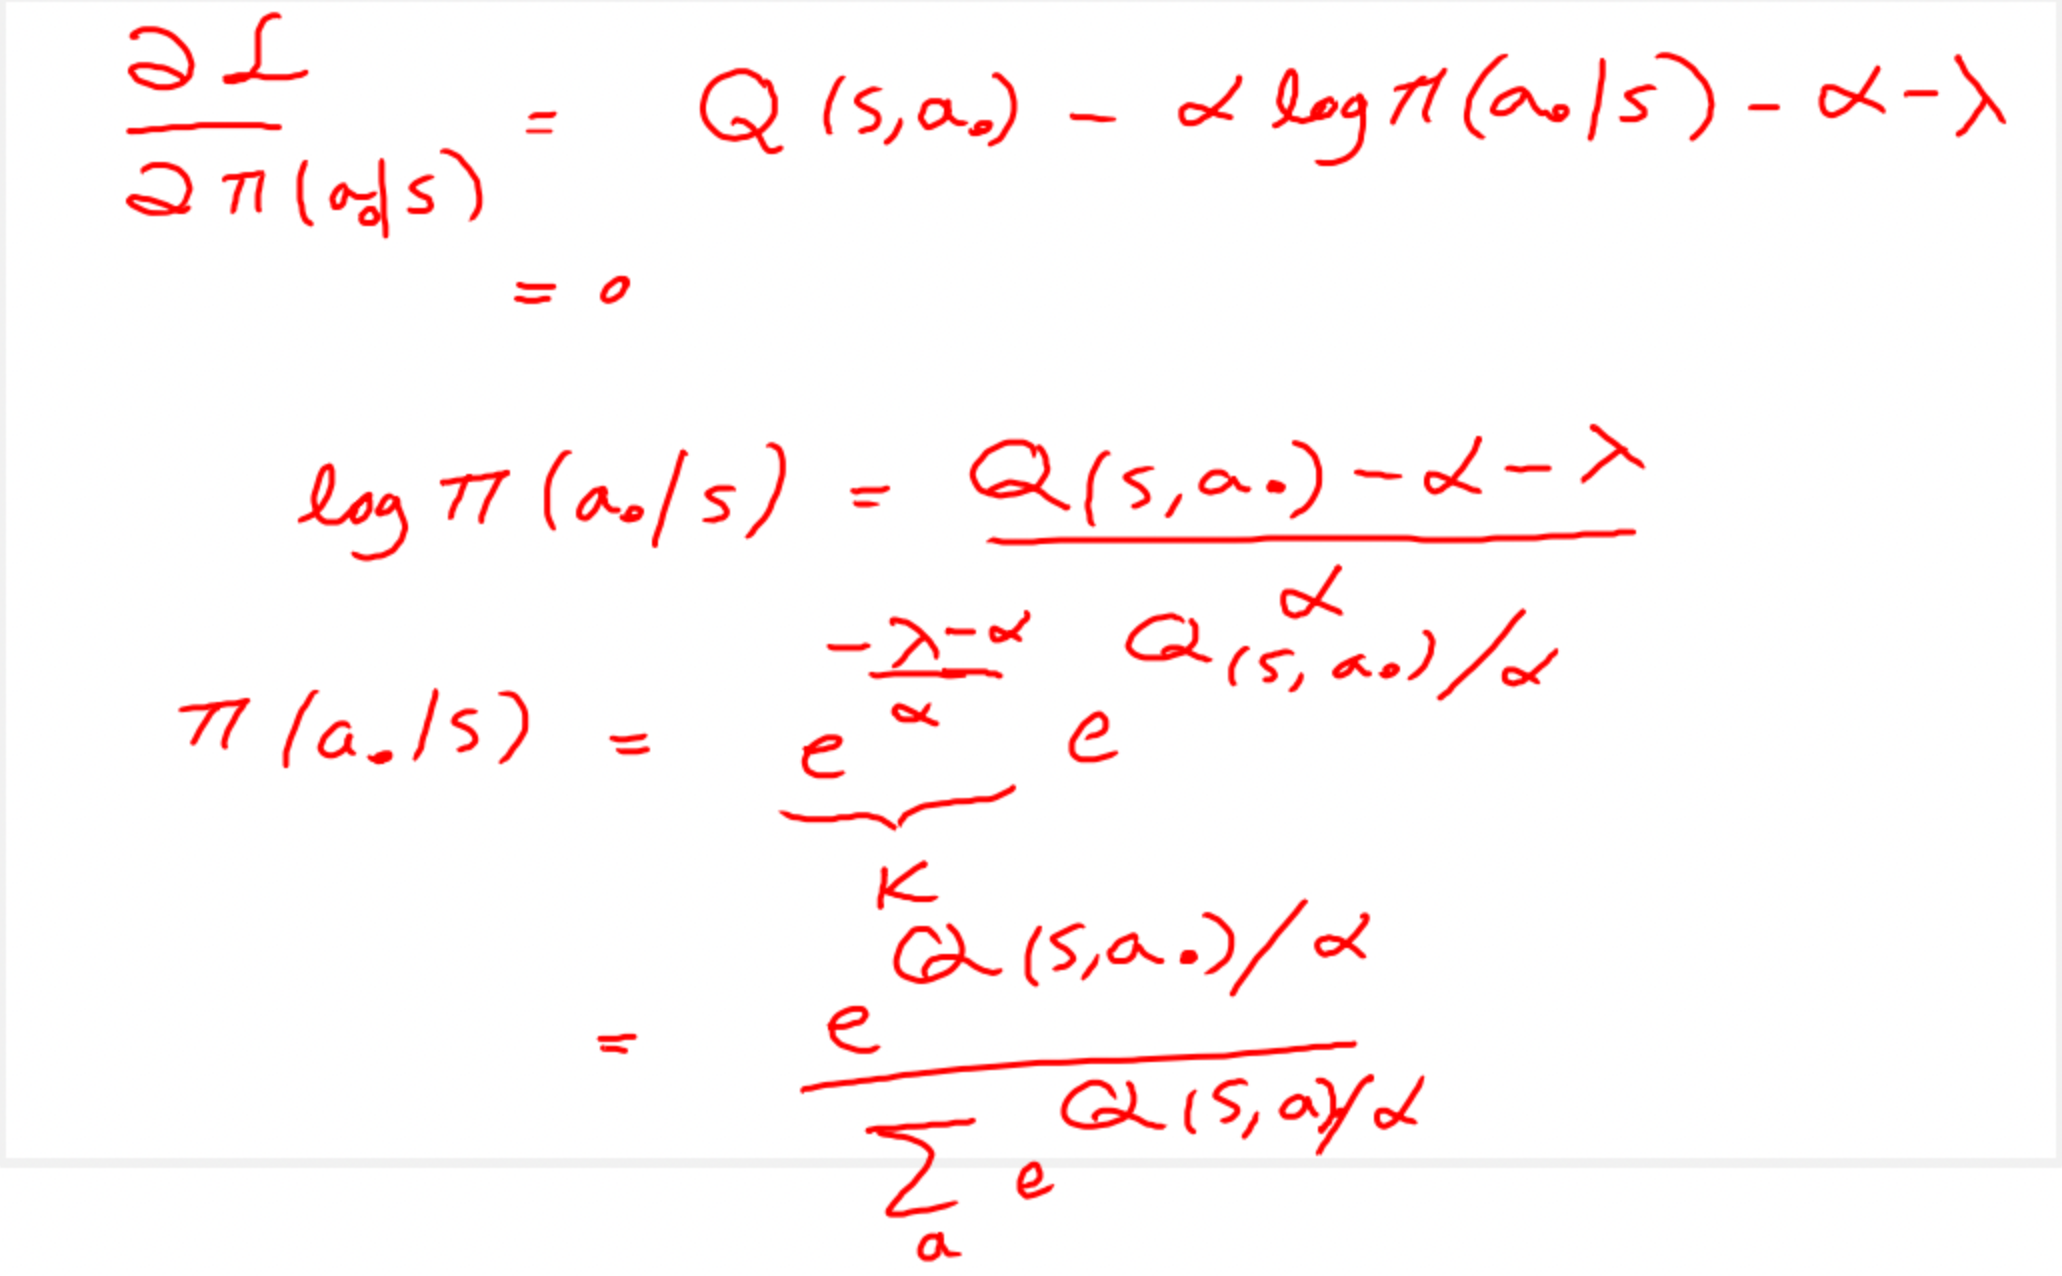 ∂ℒ/∂π(a₀|s) = Q(s,a₀) - α log π(a₀|s) - α - λ
= 0
log π(a₀|s) = (Q(s,a₀) - α - λ)/α
π(a₀|s) = e^((-λ-α)/α) e^(Q(s,a₀)/α)
K
= e^(Q(s,a₀)/α) / ∑_a e^(Q(s,a)/α)